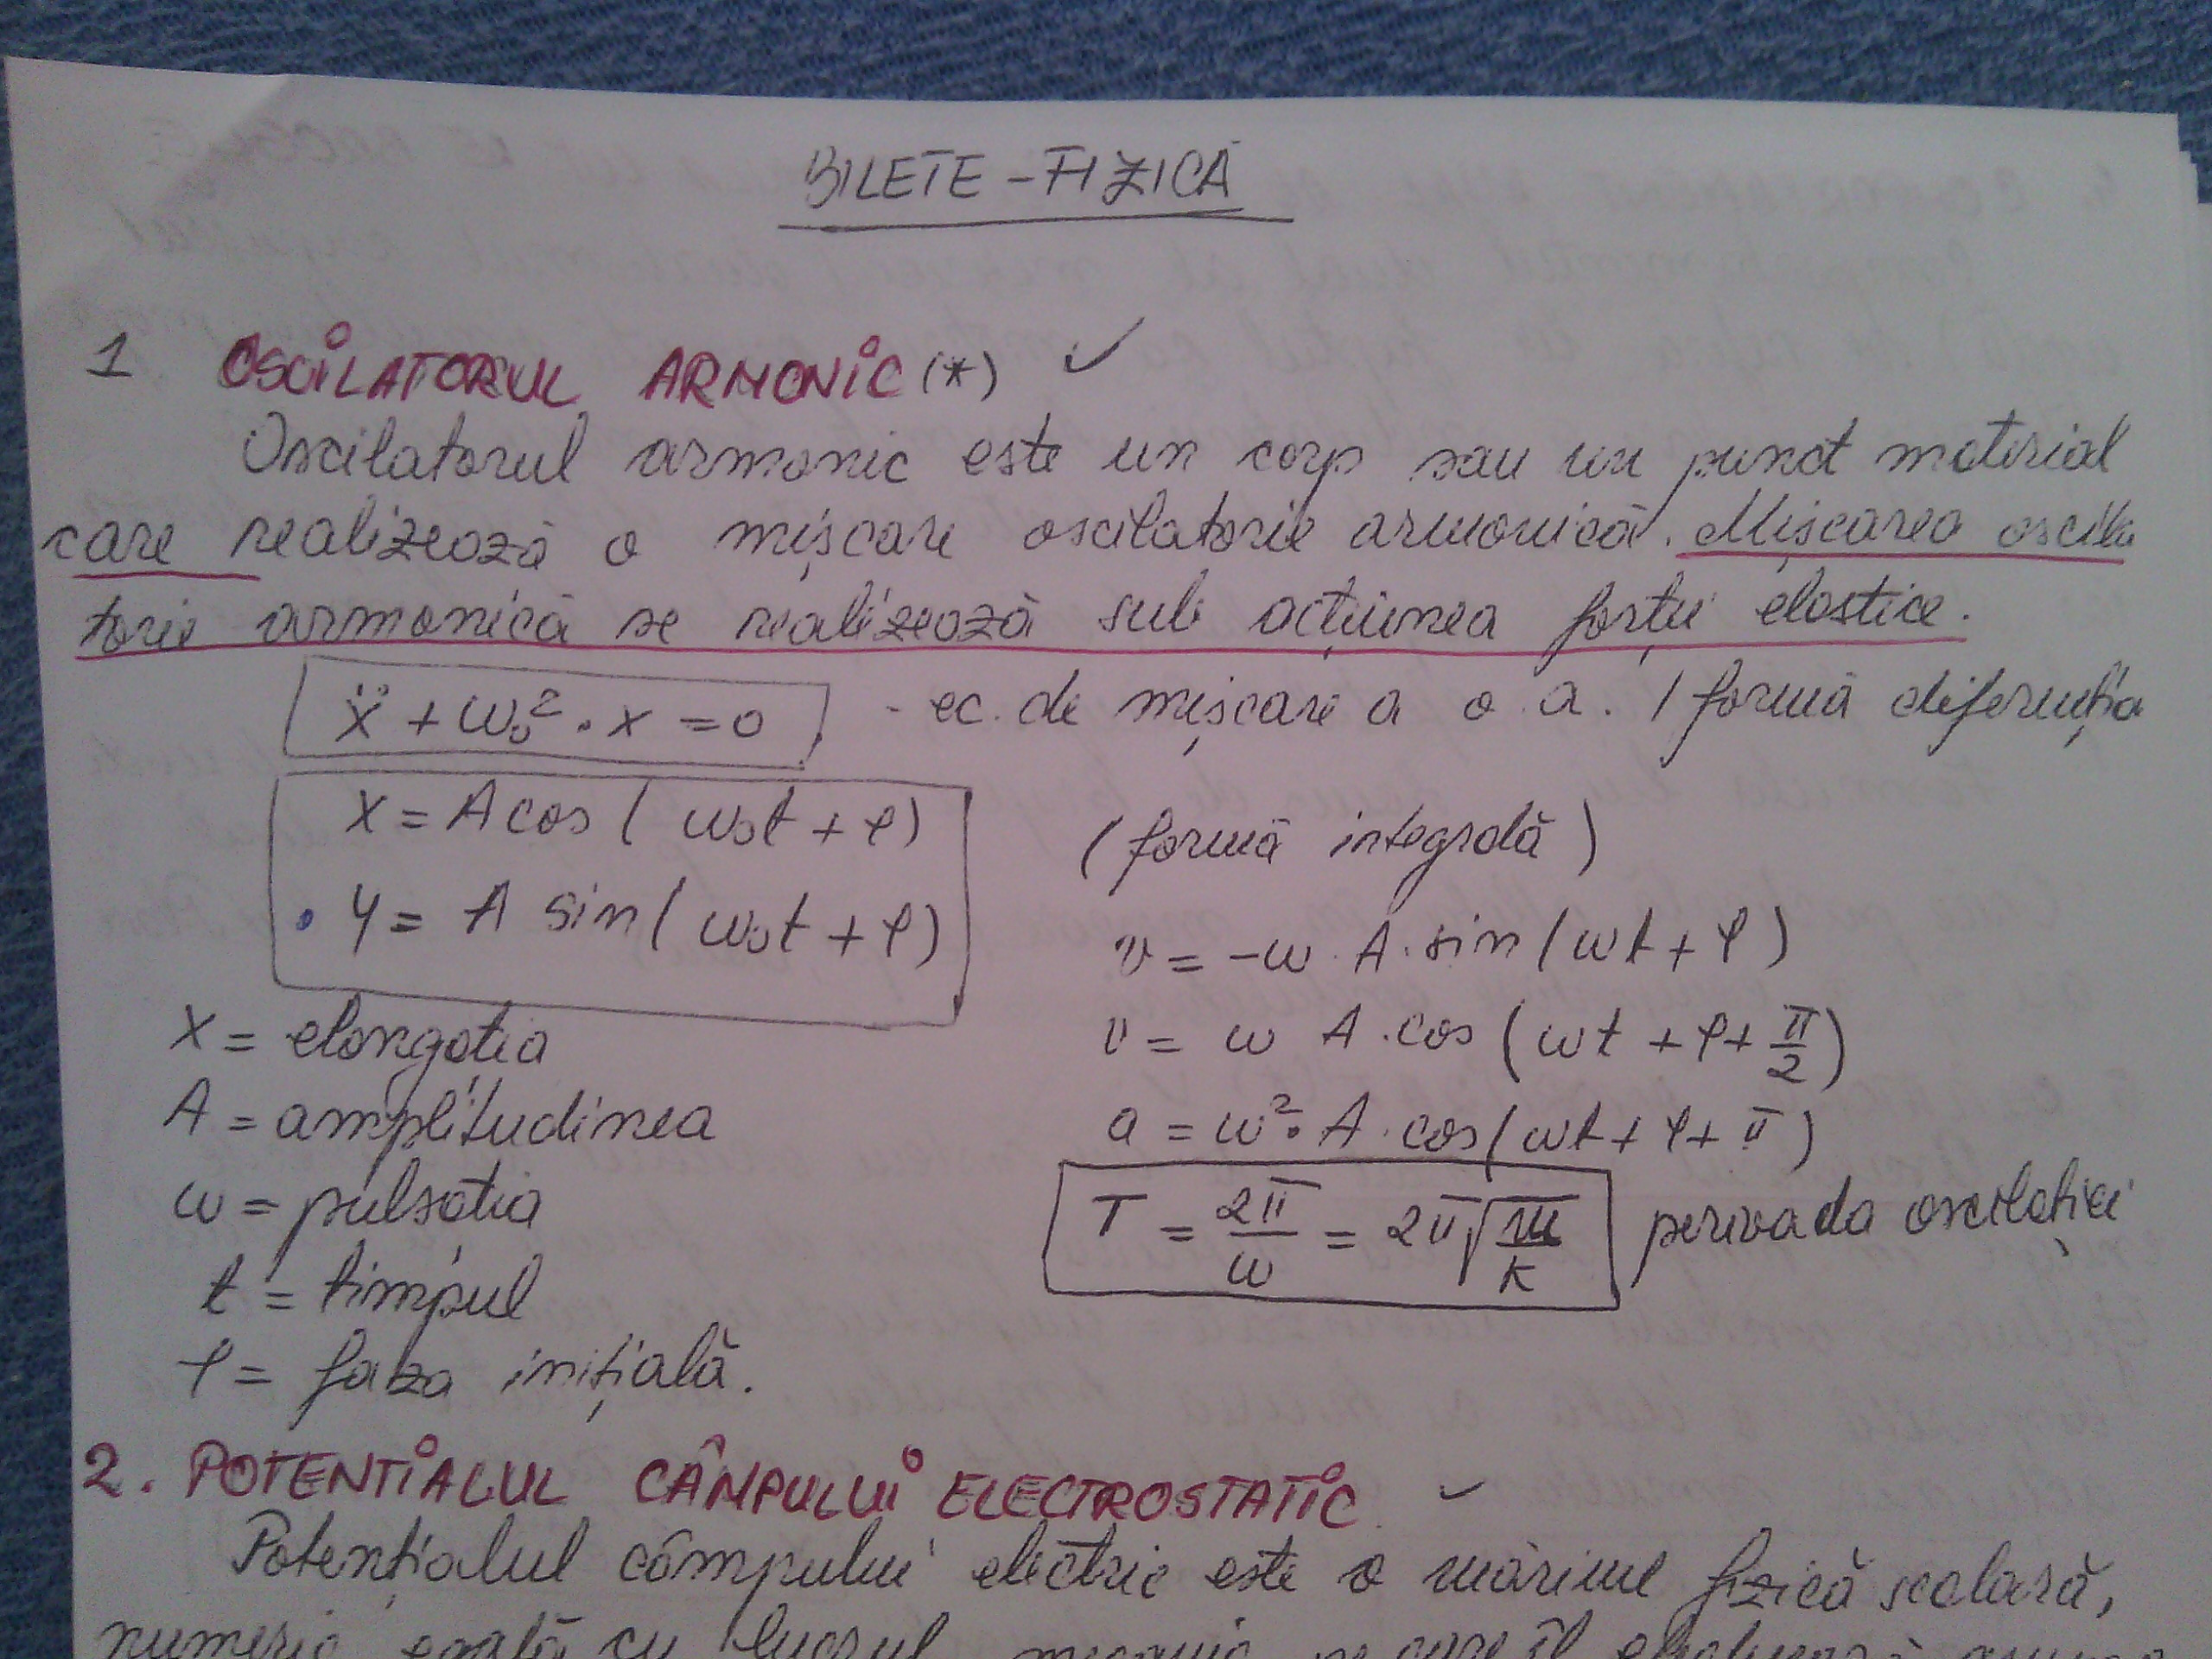 BILETE - FIZICĂ
1 OSCILATORUL ARMONIC (*) ✓
Oscilatorul armonic este un corp sau un punct material
care realizează o mișcare oscilatorie armonică. Mișcarea oscila
torie armonică se realizează sub acțiunea forței elastice.
ẍ + ω₀² · x = 0 - ec. de mișcare a o.a. / formă diferenția
x = A cos ( ω₀t + φ) (formă integrală)
• y = A sin ( ω₀t + φ)
v = -ω · A · sin (ωt + φ)
x = elongația
v = ω A · cos (ωt + φ + π/2)
A = amplitudinea
a = ω² · A · cos(ωt + φ + π)
ω = pulsația
T = 2π/ω = 2π√(m/k) perioada oscilației
t = timpul
φ = faza inițială.
2. POTENTIALUL CÂMPULUI ELECTROSTATIC ✓
Potențialul câmpului electric este o mărime fizică scalară,
numeric egală cu lucrul mecanic pe care îl